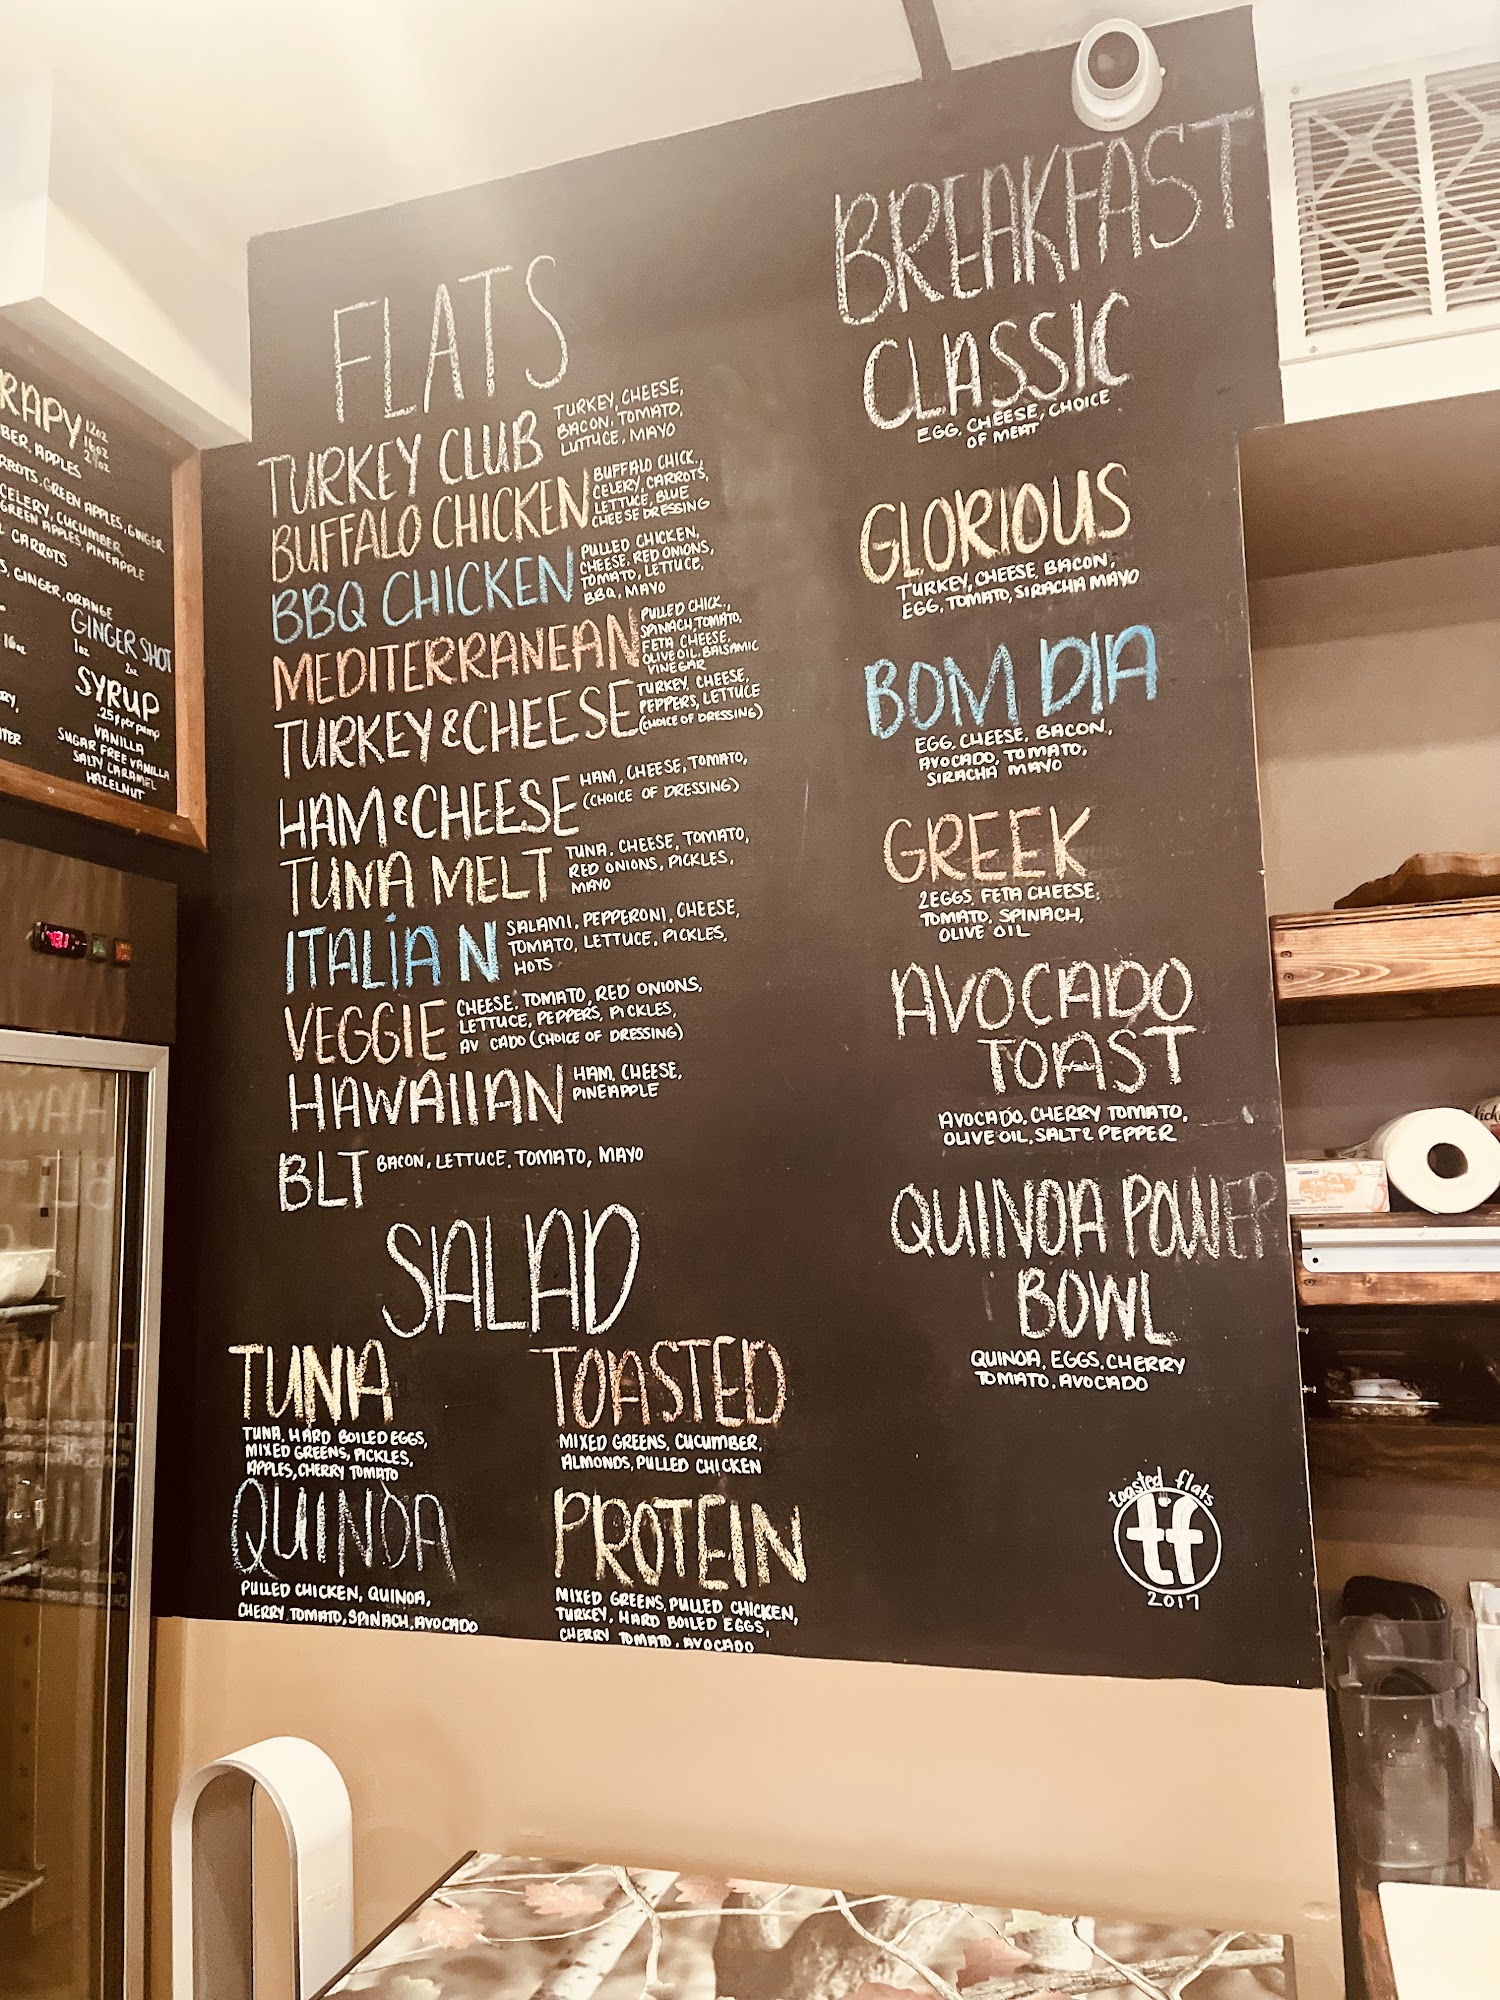 RAPY 12oz
16oz
24oz
BER, APPLES
GREEN APPLES, GINGER
CELERY, CUCUMBER,
GREEN APPLES, PINEAPPLE
CARROTS
GINGER, ORANGE
GINGER SHOT
1oz 2oz
16oz
SYRUP
.25¢ per pump
VANILLA
SUGAR FREE VANILLA
SALTY CARAMEL
HAZELNUT
FLATS
TURKEY CLUB
TURKEY, CHEESE,
BACON, TOMATO,
LUTTUCE, MAYO
BUFFALO CHICKEN
BUFFALO CHICK.,
CELERY, CARROTS,
LETTUCE, BLUE
CHEESE DRESSING
BBQ CHICKEN
PULLED CHICKEN,
CHEESE, RED ONIONS,
TOMATO, LETTUCE,
BBQ, MAYO
MEDITERRANEAN
PULLED CHICK.,
SPINACH, TOMATO,
FETA CHEESE,
OLIVE OIL, BALSAMIC
VINEGAR
TURKEY & CHEESE
TURKEY, CHEESE,
PEPPERS, LETTUCE
(CHOICE OF DRESSING)
HAM & CHEESE
HAM, CHEESE, TOMATO,
(CHOICE OF DRESSING)
TUNA MELT
TUNA, CHEESE, TOMATO,
RED ONIONS, PICKLES,
MAYO
ITALIAN
SALAMI, PEPPERONI, CHEESE,
TOMATO, LETTUCE, PICKLES,
HOTS
VEGGIE
CHEESE, TOMATO, RED ONIONS,
LETTUCE, PEPPERS, PICKLES,
AV CADO (CHOICE OF DRESSING)
HAWAIIAN
HAM, CHEESE,
PINEAPPLE
BLT
BACON, LETTUCE, TOMATO, MAYO
SALAD
TUNA
TUNA, HARD BOILED EGGS,
MIXED GREENS, PICKLES,
APPLES, CHERRY TOMATO
TOASTED
MIXED GREENS, CUCUMBER,
ALMONDS, PULLED CHICKEN
QUINOA
PULLED CHICKEN, QUINOA,
CHERRY TOMATO, SPINACH, AVOCADO
PROTEIN
MIXED GREENS, PULLED CHICKEN,
TURKEY, HARD BOILED EGGS,
CHERRY TOMATO, AVOCADO
BREAKFAST
CLASSIC
EGG, CHEESE, CHOICE
OF MEAT
GLORIOUS
TURKEY, CHEESE, BACON,
EGG, TOMATO, SIRACHA MAYO
BOM DIA
EGG, CHEESE, BACON,
AVOCADO, TOMATO,
SIRACHA MAYO
GREEK
2EGGS, FETA CHEESE,
TOMATO, SPINACH,
OLIVE OIL
AVOCADO
TOAST
AVOCADO, CHERRY TOMATO,
OLIVE OIL, SALT & PEPPER
QUINOA POWER
BOWL
QUINOA, EGGS, CHERRY
TOMATO, AVOCADO
toasted flats
tf
2017